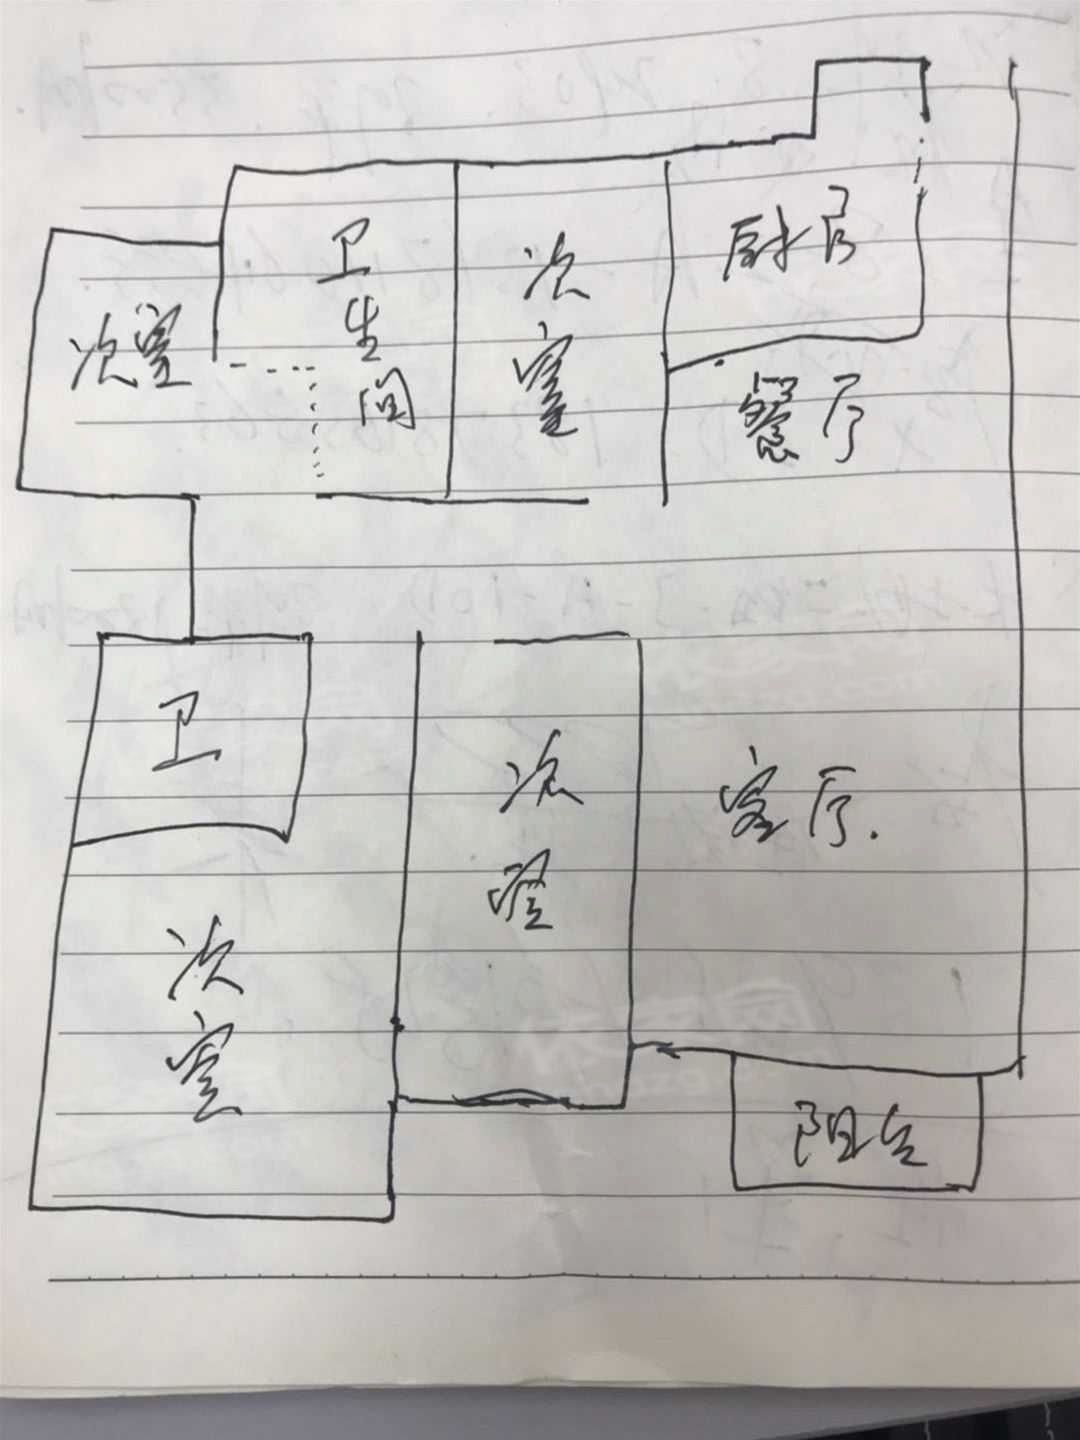 卫生间
次室
厨房
次室
餐厅
卫
次室
客厅.
次室
阳台